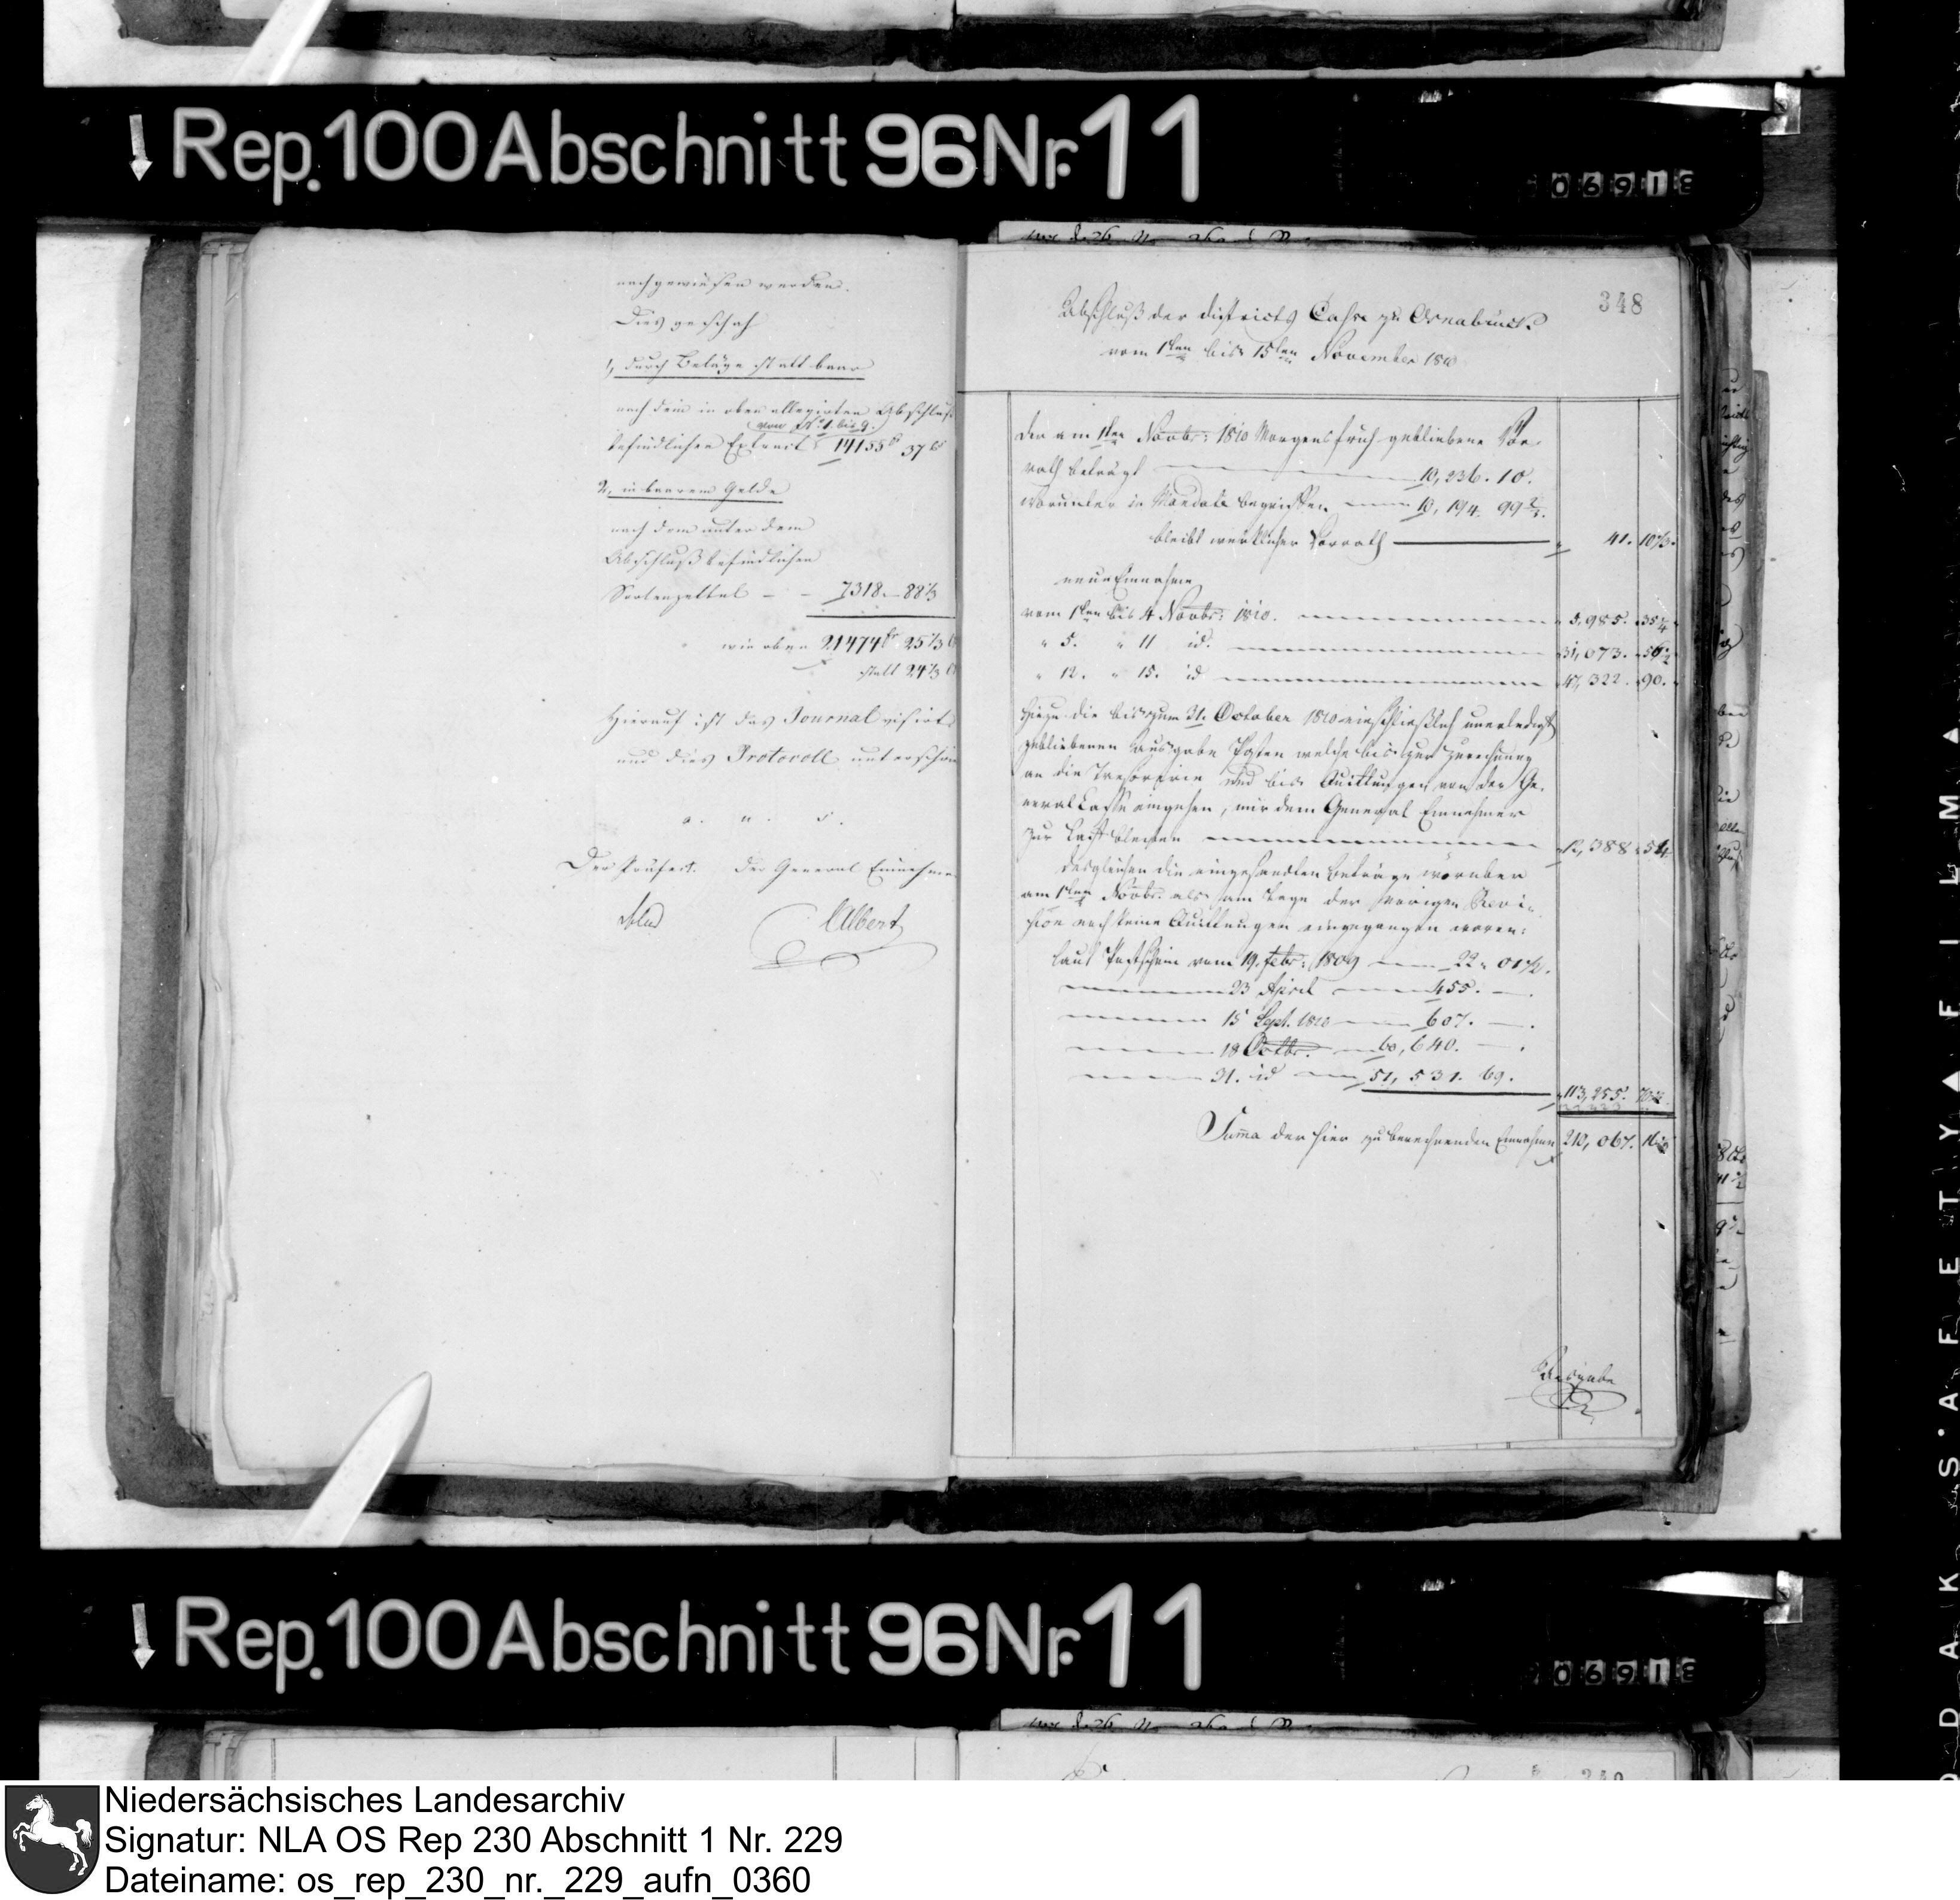 Rep. 100 Abschnitt 96 Nr. 11
06918
nachgewiesen werden.
Dies geschah
1, durch Beläge statt baar
nach dem in oben allegirten Abschluß
von No. 1 bis 9.
befindlichen Extract 14155 fr 37 Cs
2, in baarem Gelde
nach dem unter dem
Abschluß befindlichen
Sortenzettel - - 7318. - 88 1/3
wie oben 21474 fr 25 1/3
statt 24 1/3
Hierauf ist das Journal visirt
und dies Protocoll unterschrieben
a. u. s.
Der Präfect. Der General Einnehmer
Albert
348
Abschluß der districts Casse zu Osnabrück
vom 1ten bis 15ten November 1810
Der am 1ten Novbr: 1810 Morgens früh gebliebene Vor-
rath beträgt 10,236. 10.
worunter in Mandate begriffen 10,194. 99 2/3.
bleibt wirklicher Vorrath 41. 10 1/3.
neue Einnahme
vom 1ten bis 4 Novbr: 1810. 5,985. 35 1/4
" 5. " 11 id. 31,073. 56 1/2
" 12. " 15. id 47,322. 90.
Hiezu die bis zum 31. October 1810 einschließlich unerledigt
gebliebenen Ausgabe Posten welche bis zur Zurechnung
an die Tresorerie und bis Quittungen von der Ge-
neral Casse eingehen, mir dem General Einnehmer
zur Last bleiben 12,388. 54
desgleichen die eingesandten Beträge worüber
am 1ten Novbr. als am Tage der vorigen Revi-
sion noch keine Quittungen eingegangen waren:
laut Postschein vom 19. febr: 1809 22. 01 1/2.
23 April 455. —.
15 Sept. 1810 607. —.
18 Octbr. 60,640. —.
31. id 51,531. 69.
113,255. 70 1/2
Summa der hier zu berechnenden Einnahmen 210,067. 16
Ausgabe
Rep. 100 Abschnitt 96 Nr. 11
06918
Niedersächsisches Landesarchiv
Signatur: NLA OS Rep 230 Abschnitt 1 Nr. 229
Dateiname: os_rep_230_nr._229_aufn_0360